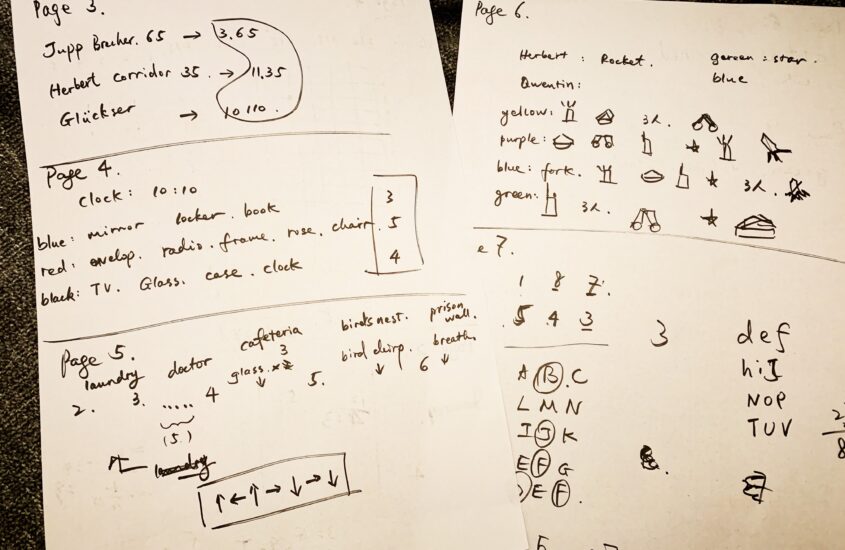 Page 3.
Jupp Brucher. 65 → 3.65
Herbert corridor 35. → 11.35
Glückser → 10 110.
Page 4.
clock: 10:10
blue: mirror locker. book 3
red: envelop. radio. frame. rose. chair. 5
black: TV. Glass. case. clock 4
Page 5.
laundry doctor cafeteria bird's nest. prison wall.
3
glass. bird chirp. breath.
2. 3. ..... 4 ↓ 5. ↓ 6 ↓
(5.)
↑←↑→↓→↓
Page 6.
Herbert: Rocket. gereen: star.
Qwentin: blue
yellow: 3人.
purple:
blue: fork. 3人.
green: 3人.
e 7.
1 8 7.
.5 .4 3
3 def
A B.C hiJ
L M N NOP
I J K TUV
E F G
D E F.